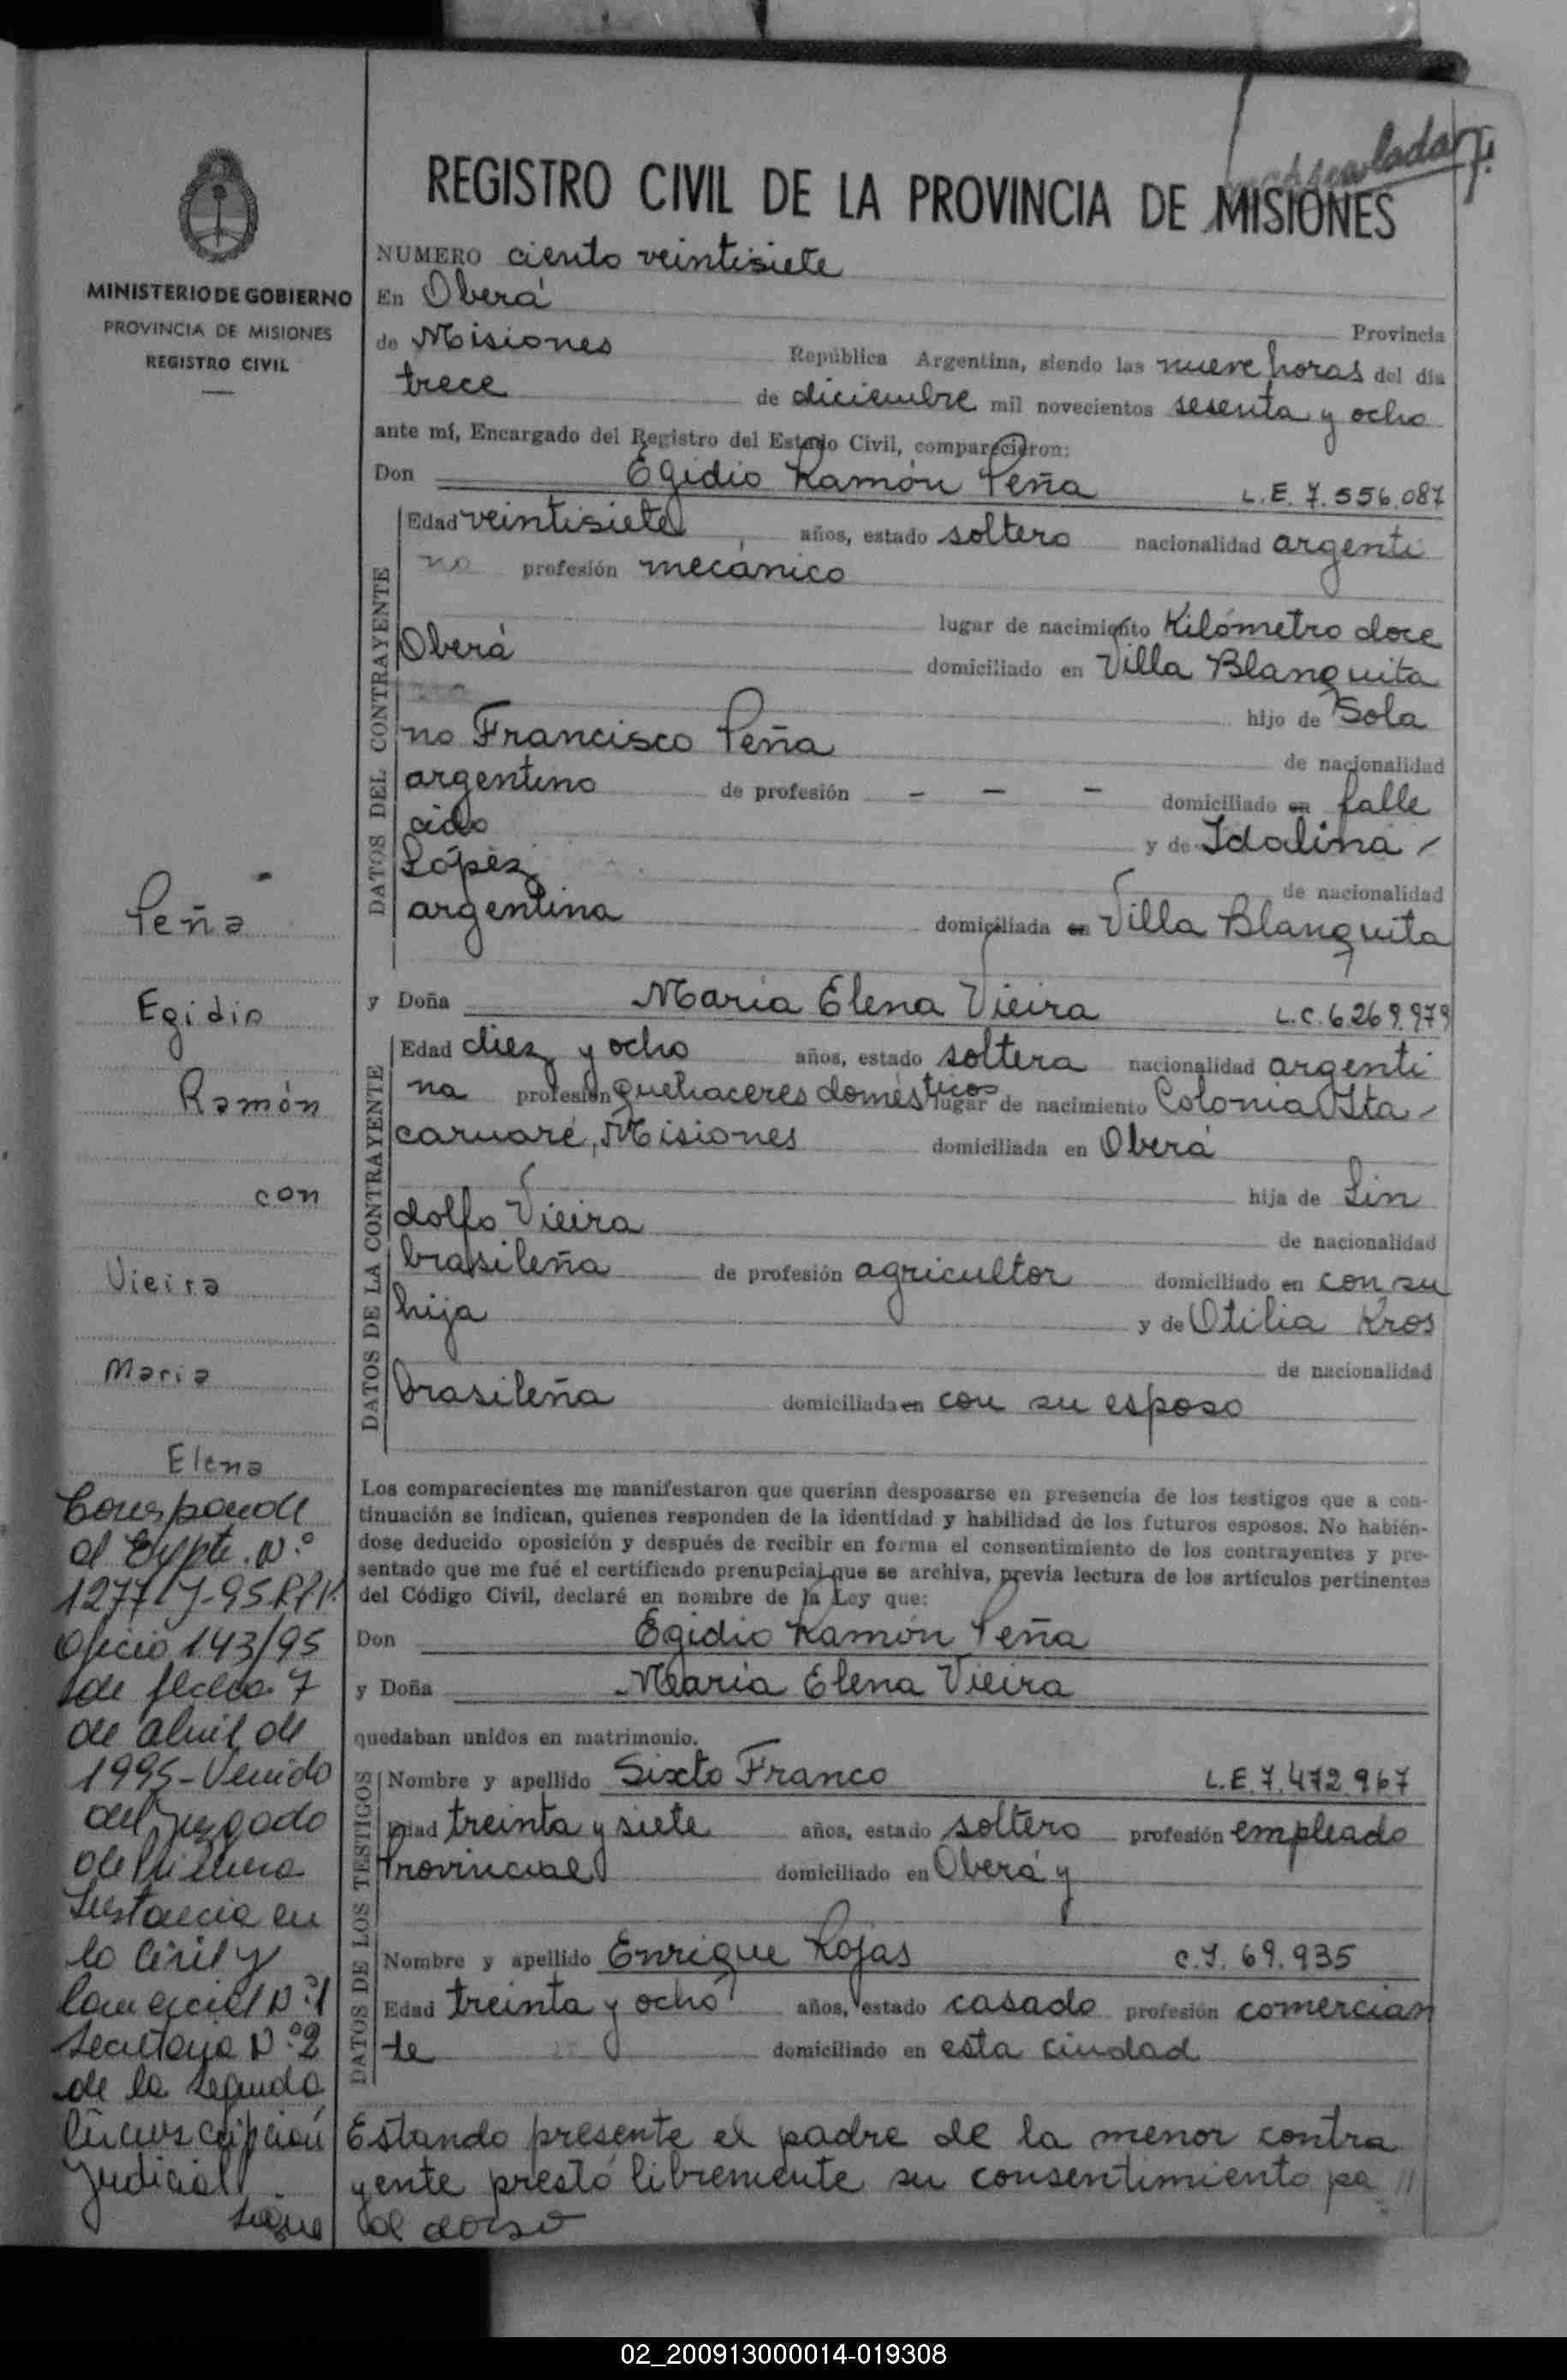 REGISTRO CIVIL DE LA PROVINCIA DE MISIONES
MINISTERIO DE GOBIERNO
PROVINCIA DE MISIONES
REGISTRO CIVIL
Peña
Egidio
Ramón
con
Vieira
Maria
Elena
Corresponde
al Expte. N.º
1277
Oficio 143/95
de fecha 7
de abril de
1995 - Venido
del Juzgado
de Primera
Instancia en
lo Civil y
Comercial N.º 1
Secretaria N.º 2
de la segunda
Circunscripción
Judicial
Sigue
NUMERO ciento veintisiete
En Oberá
Provincia
de Misiones República Argentina, siendo las nueve horas del día
trece de diciembre mil novecientos sesenta y ocho
ante mí, Encargado del Registro del Estado Civil, comparecieron:
Don Egidio Ramón Peña L.E. 7.556.087
DATOS DEL CONTRAYENTE
Edad veintisiete años, estado soltero nacionalidad argenti
no profesión mecánico
lugar de nacimiento Kilómetro doce
Oberá domiciliado en Villa Blanquita
hijo de Sola
no Francisco Peña
de nacionalidad
argentino de profesión - - - domiciliado en falle
cido
y de Idalina -
López
de nacionalidad
argentina domiciliada en Villa Blanquita
y Doña María Elena Vieira L.C. 6.269.979
DATOS DE LA CONTRAYENTE
Edad diez y ocho años, estado soltera nacionalidad argenti
na profesión quehaceres domésticos lugar de nacimiento Colonia Ita-
caruaré, Misiones domiciliada en Oberá
hija de Lin
dolfo Vieira
de nacionalidad
brasileña de profesión agricultor domiciliado en con su
hija y de Otilia Kros
de nacionalidad
brasileña domiciliada en con su esposo
Los comparecientes me manifestaron que querían desposarse en presencia de los testigos que a con-
tinuación se indican, quienes responden de la identidad y habilidad de los futuros esposos. No habién-
dose deducido oposición y después de recibir en forma el consentimiento de los contrayentes y pre-
sentado que me fué el certificado prenupcial que se archiva, previa lectura de los artículos pertinentes
del Código Civil, declaré en nombre de la Ley que:
Don Egidio Ramón Peña
y Doña María Elena Vieira
quedaban unidos en matrimonio.
DATOS DE LOS TESTIGOS
Nombre y apellido Sixto Franco L.E. 7.472.967
Edad treinta y siete años, estado soltero profesión empleado
Provincial domiciliado en Oberá y
Nombre y apellido Enrique Rojas C.I. 69.935
Edad treinta y ocho años, estado casado profesión comercian
te domiciliado en esta ciudad
Estando presente el padre de la menor contra
yente prestó libremente su consentimiento pa //
al dorso
02_200913000014-019308